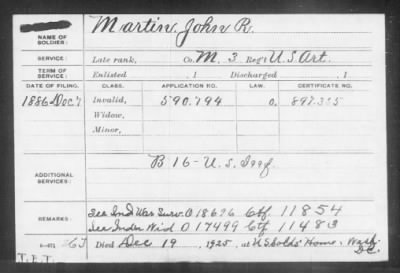 Martin, John R.
NAME OF SOLDIER:
SERVICE: Late rank, Co. M. 3 Reg't U.S. Art.
TERM OF SERVICE: Enlisted , 1 Discharged , 1
DATE OF FILING. CLASS. APPLICATION NO. LAW. CERTIFICATE NO.
1886 Dec 7 Invalid, 590.794 O. 897.355
Widow,
Minor,
ADDITIONAL SERVICES: B 16 - U.S. Inf
REMARKS: See Ind War Surv. O 18696 Ctf. 11854
See Inden Wid O 17499 Ctf 11483
Died Dec 19, 1925, at US Solds' Home, Wash. DC.